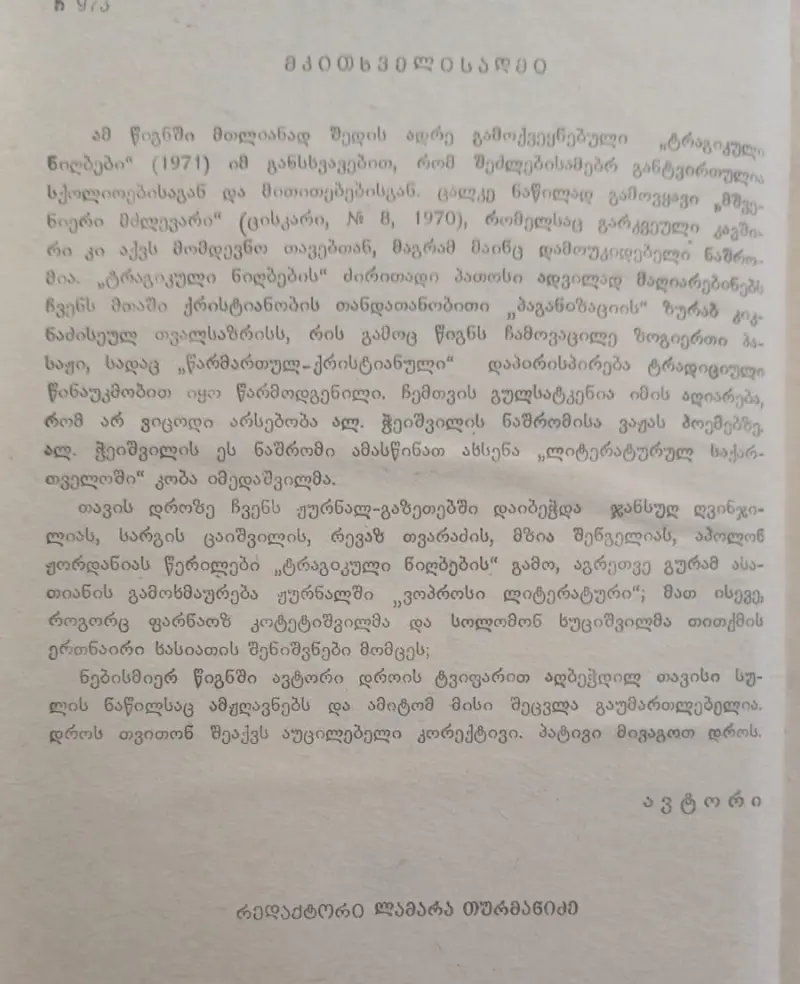 ჩ 973
მკითხველისადმი
ამ წიგნში მთლიანად შედის ადრე გამოქვეყნებული „ტრაგიკული
ნიღბები“ (1971) იმ განსხვავებით, რომ შეძლებისამებრ განტვირთულია
სქოლიოებისაგან და მითითებებისგან. ცალკე ნაწილად გამოვყავი „მშვე-
ნიერი მძლევარი“ (ცისკარი, № 8, 1970), რომელსაც გარკვეული კავში-
რი კი აქვს მომდევნო თავებთან, მაგრამ მაინც დამოუკიდებელი ნაშრო-
მია. „ტრაგიკული ნიღბების“ ძირითადი პათოსი ადვილად მაღიარებინებს
ჩვენს მთაში ქრისტიანობის თანდათანობითი „პაგანიზაციის“ ზურაბ კიკ-
ნაძისეულ თვალსაზრისს, რის გამოც წიგნს ჩამოვაცილე ზოგიერთი პა-
საჟი, სადაც „წარმართულ-ქრისტიანული“ დაპირისპირება ტრადიციული
წინაუკმობით იყო წარმოდგენილი. ჩემთვის გულსატკენია იმის აღიარება,
რომ არ ვიცოდი არსებობა ალ. ჭეიშვილის ნაშრომისა ვაჟას პოემებზე.
ალ. ჭეიშვილის ეს ნაშრომი ამასწინათ ახსენა „ლიტერატურულ საქარ-
თველოში“ კობა იმედაშვილმა.
თავის დროზე ჩვენს ჟურნალ-გაზეთებში დაიბეჭდა ჯანსუღ ღვინჯი-
ლიას, სარგის ცაიშვილის, რევაზ თვარაძის, მზია შენგელიას, აპოლონ
ჟორდანიას წერილები „ტრაგიკული ნიღბების“ გამო, აგრეთვე გურამ ასა-
თიანის გამოხმაურება ჟურნალში „ვოპროსი ლიტერატური“; მათ ისევე,
როგორც ფარნაოზ კოტეტიშვილმა და სოლომონ ხუციშვილმა თითქმის
ერთნაირი ხასიათის შენიშვნები მომცეს;
ნებისმიერ წიგნში ავტორი დროის ტვიფარით აღბეჭდილ თავისი სუ-
ლის ნაწილსაც ამჟღავნებს და ამიტომ მისი შეცვლა გაუმართლებელია.
დროს თვითონ შეაქვს აუცილებელი კორექტივი. პატივი მივაგოთ დროს.
ავტორი
რედაქტორი ლამარა თურმანიძე